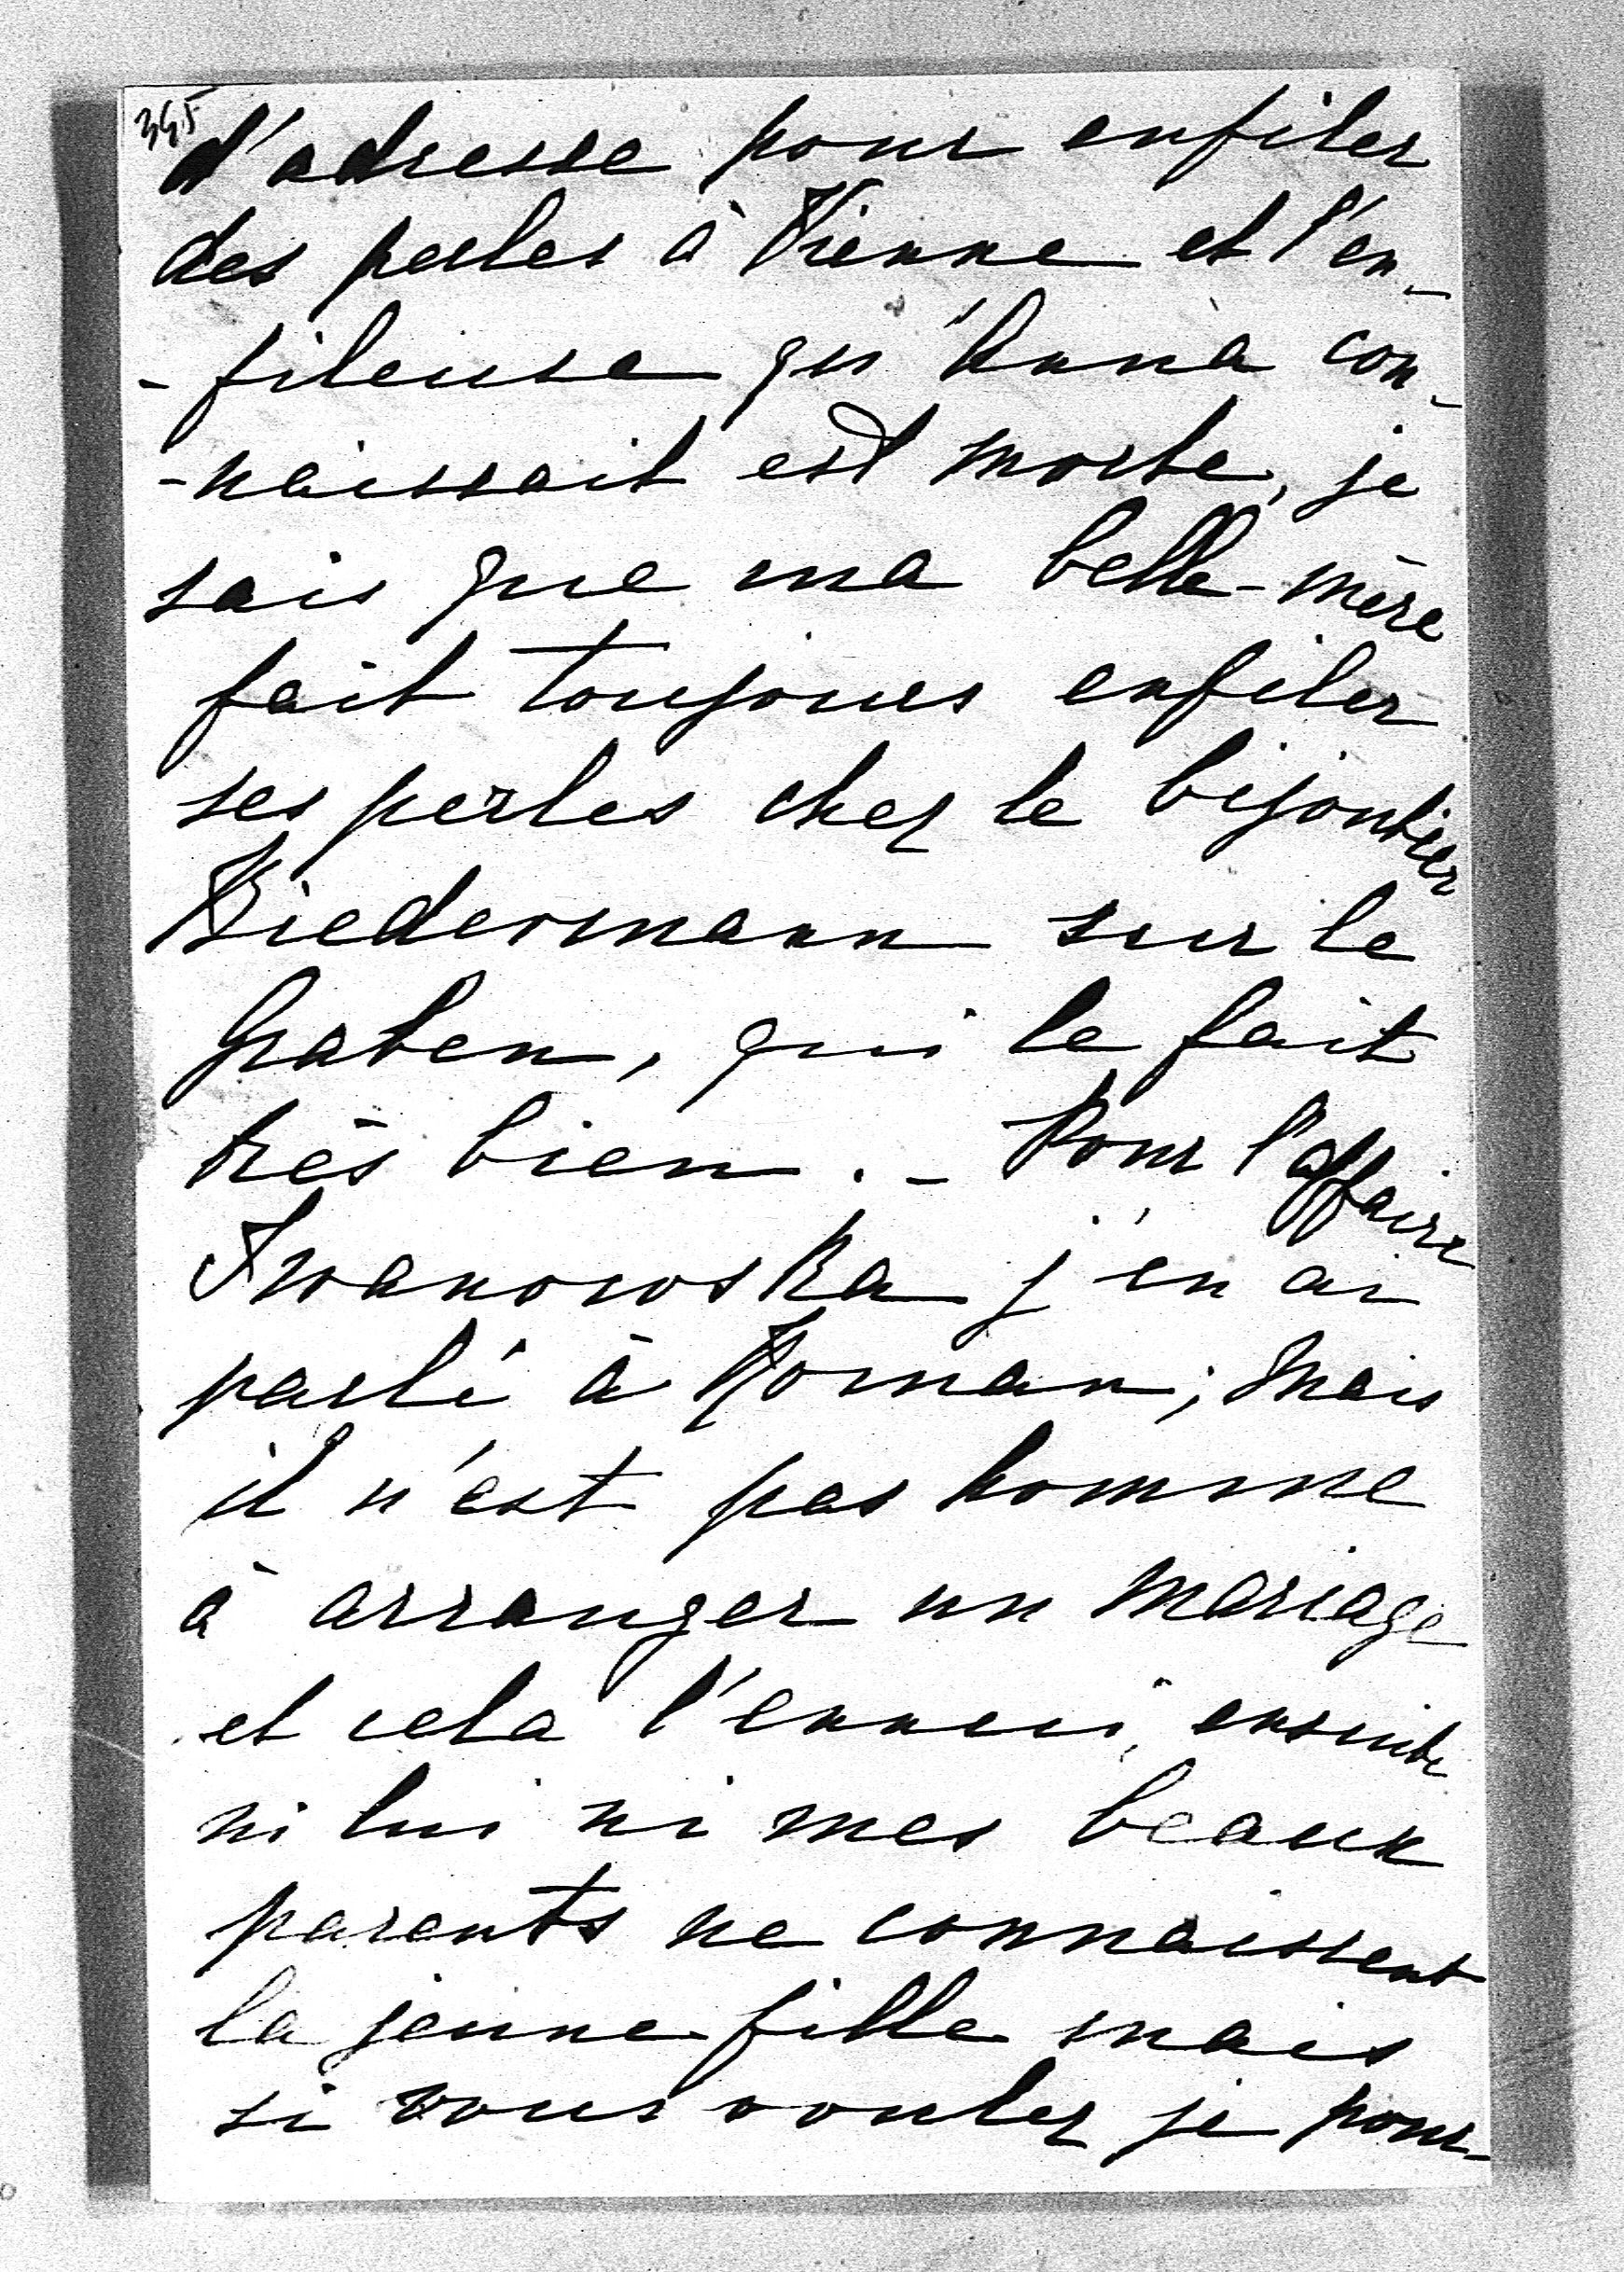 345
d'adresse pour enfiler
des perles à Vienne et l'en-
-fileuse qu'Anna con-
-naissait est morte, je
sais que ma belle-mère
fait toujours enfiler
ses perles chez le bijoutier
Biedermann sur le
Graben, qui le fait
très bien. - Pour l'affaire
Iwanowska j'en ai
parlé à Roman; mais
il n'est pas homme
à arranger un mariage
et cela l'ennui, ensuite
ni lui ni mes beaux
parents ne connaissent
la jeune fille mais
si vous voulez je pour-